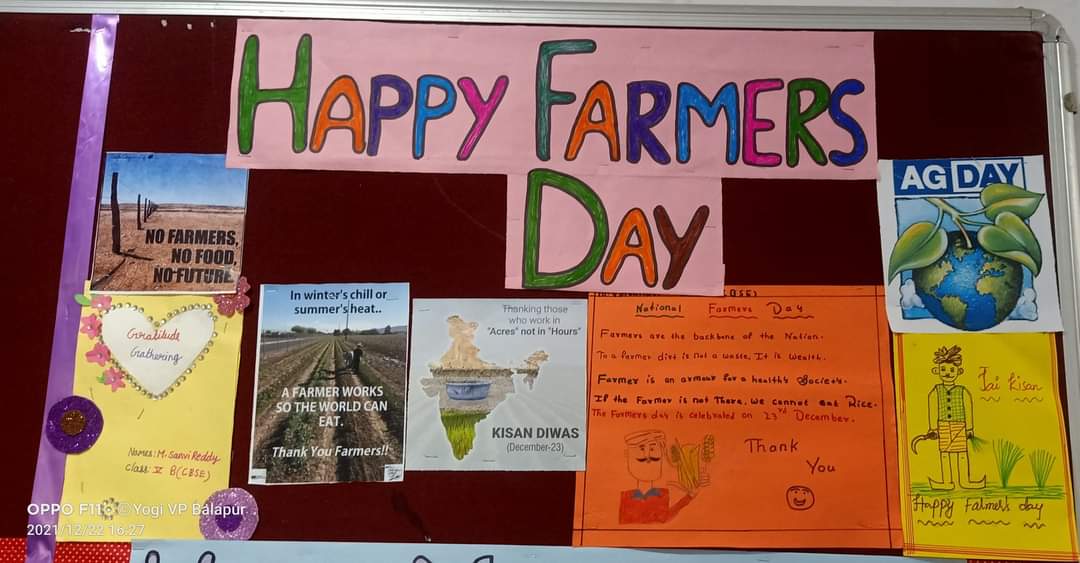 HAPPY FARMERS
DAY
NO FARMERS,
NO FOOD,
NO FUTURE
AG DAY
Gratitude
Gathering
Name: M. Sanvi Reddy
Class: V B (CBSE)
In winter's chill or
summer's heat..
A FARMER WORKS
SO THE WORLD CAN
EAT.
Thank You Farmers!!
Thanking those
who work in
"Acres" not in "Hours"
KISAN DIWAS
(December-23)
National Farmers Day
Farmers are the backbone of the Nation.
To a farmer dirt is not a waste, It is wealth.
Farmer is an armour for a healthy Society.
If the Farmer is not There, we cannot eat Rice.
The Farmers day is celebrated on 23rd December.
Thank
You
Jai Kisan
Happy Falmer's day
OPPO F11 © Yogi VP Balapur
2021/12/22 16:27